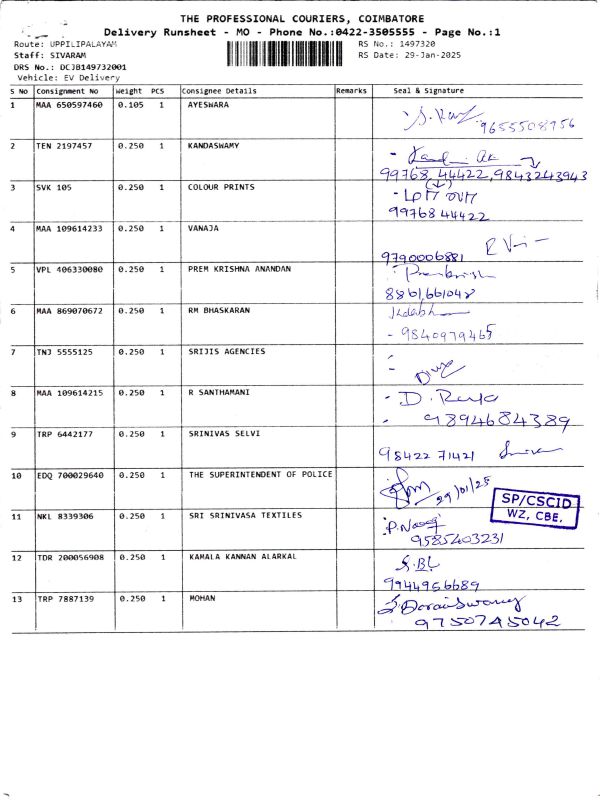 THE PROFESSIONAL COURIERS, COIMBATORE
Delivery Runsheet - MO - Phone No.:0422-3505555 - Page No.:1
Route: UPPILIPALAYAM
RS No.: 1497320
Staff: SIVARAM
RS Date: 29-Jan-2025
DRS No.: DCJB149732001
Vehicle: EV Delivery
S No Consignment No Weight PCS Consignee Details Remarks Seal & Signature
1 MAA 650597460 0.105 1 AYESWARA
9655508956
2 TEN 2197457 0.250 1 KANDASWAMY
99768 44422, 9843243943
3 SVK 105 0.250 1 COLOUR PRINTS
99768 44422
4 MAA 109614233 0.250 1 VANAJA
9790006881
5 VPL 406330080 0.250 1 PREM KRISHNA ANANDAN
8861661048
6 MAA 869070672 0.250 1 RM BHASKARAN
- 9840979465
7 TNJ 5555125 0.250 1 SRIJIS AGENCIES
8 MAA 109614215 0.250 1 R SANTHAMANI
- D.
- 9894684389
9 TRP 6442177 0.250 1 SRINIVAS SELVI
98422 71421
10 EDQ 700029640 0.250 1 THE SUPERINTENDENT OF POLICE
29/01/25
SP/CSCID
WZ, CBE.
11 NKL 8339306 0.250 1 SRI SRINIVASA TEXTILES
9585403231
12 TDR 200056908 0.250 1 KAMALA KANNAN ALARKAL
9944956689
13 TRP 7887139 0.250 1 MOHAN
S. Doraiswamy
9750745042